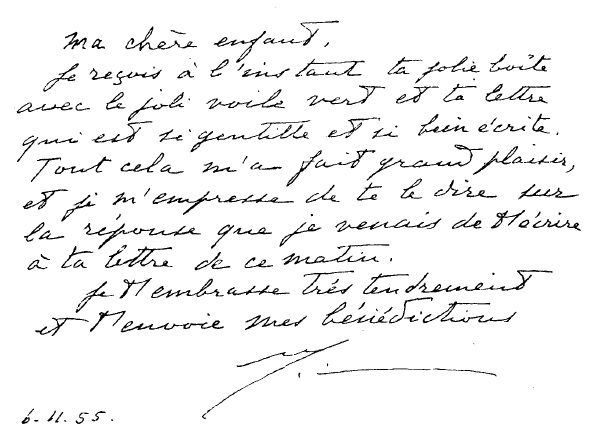 Ma chère enfant,
Je reçois à l'instant ta jolie boîte
avec le joli voile vert et ta lettre
qui est si gentille et si bien écrite.
Tout cela m'a fait grand plaisir,
et je m'empresse de te le dire sur
la réponse que je venais de t'écrire
à ta lettre de ce matin.
Je t'embrasse très tendrement
et t'envoie mes bénédictions
6-11.55.